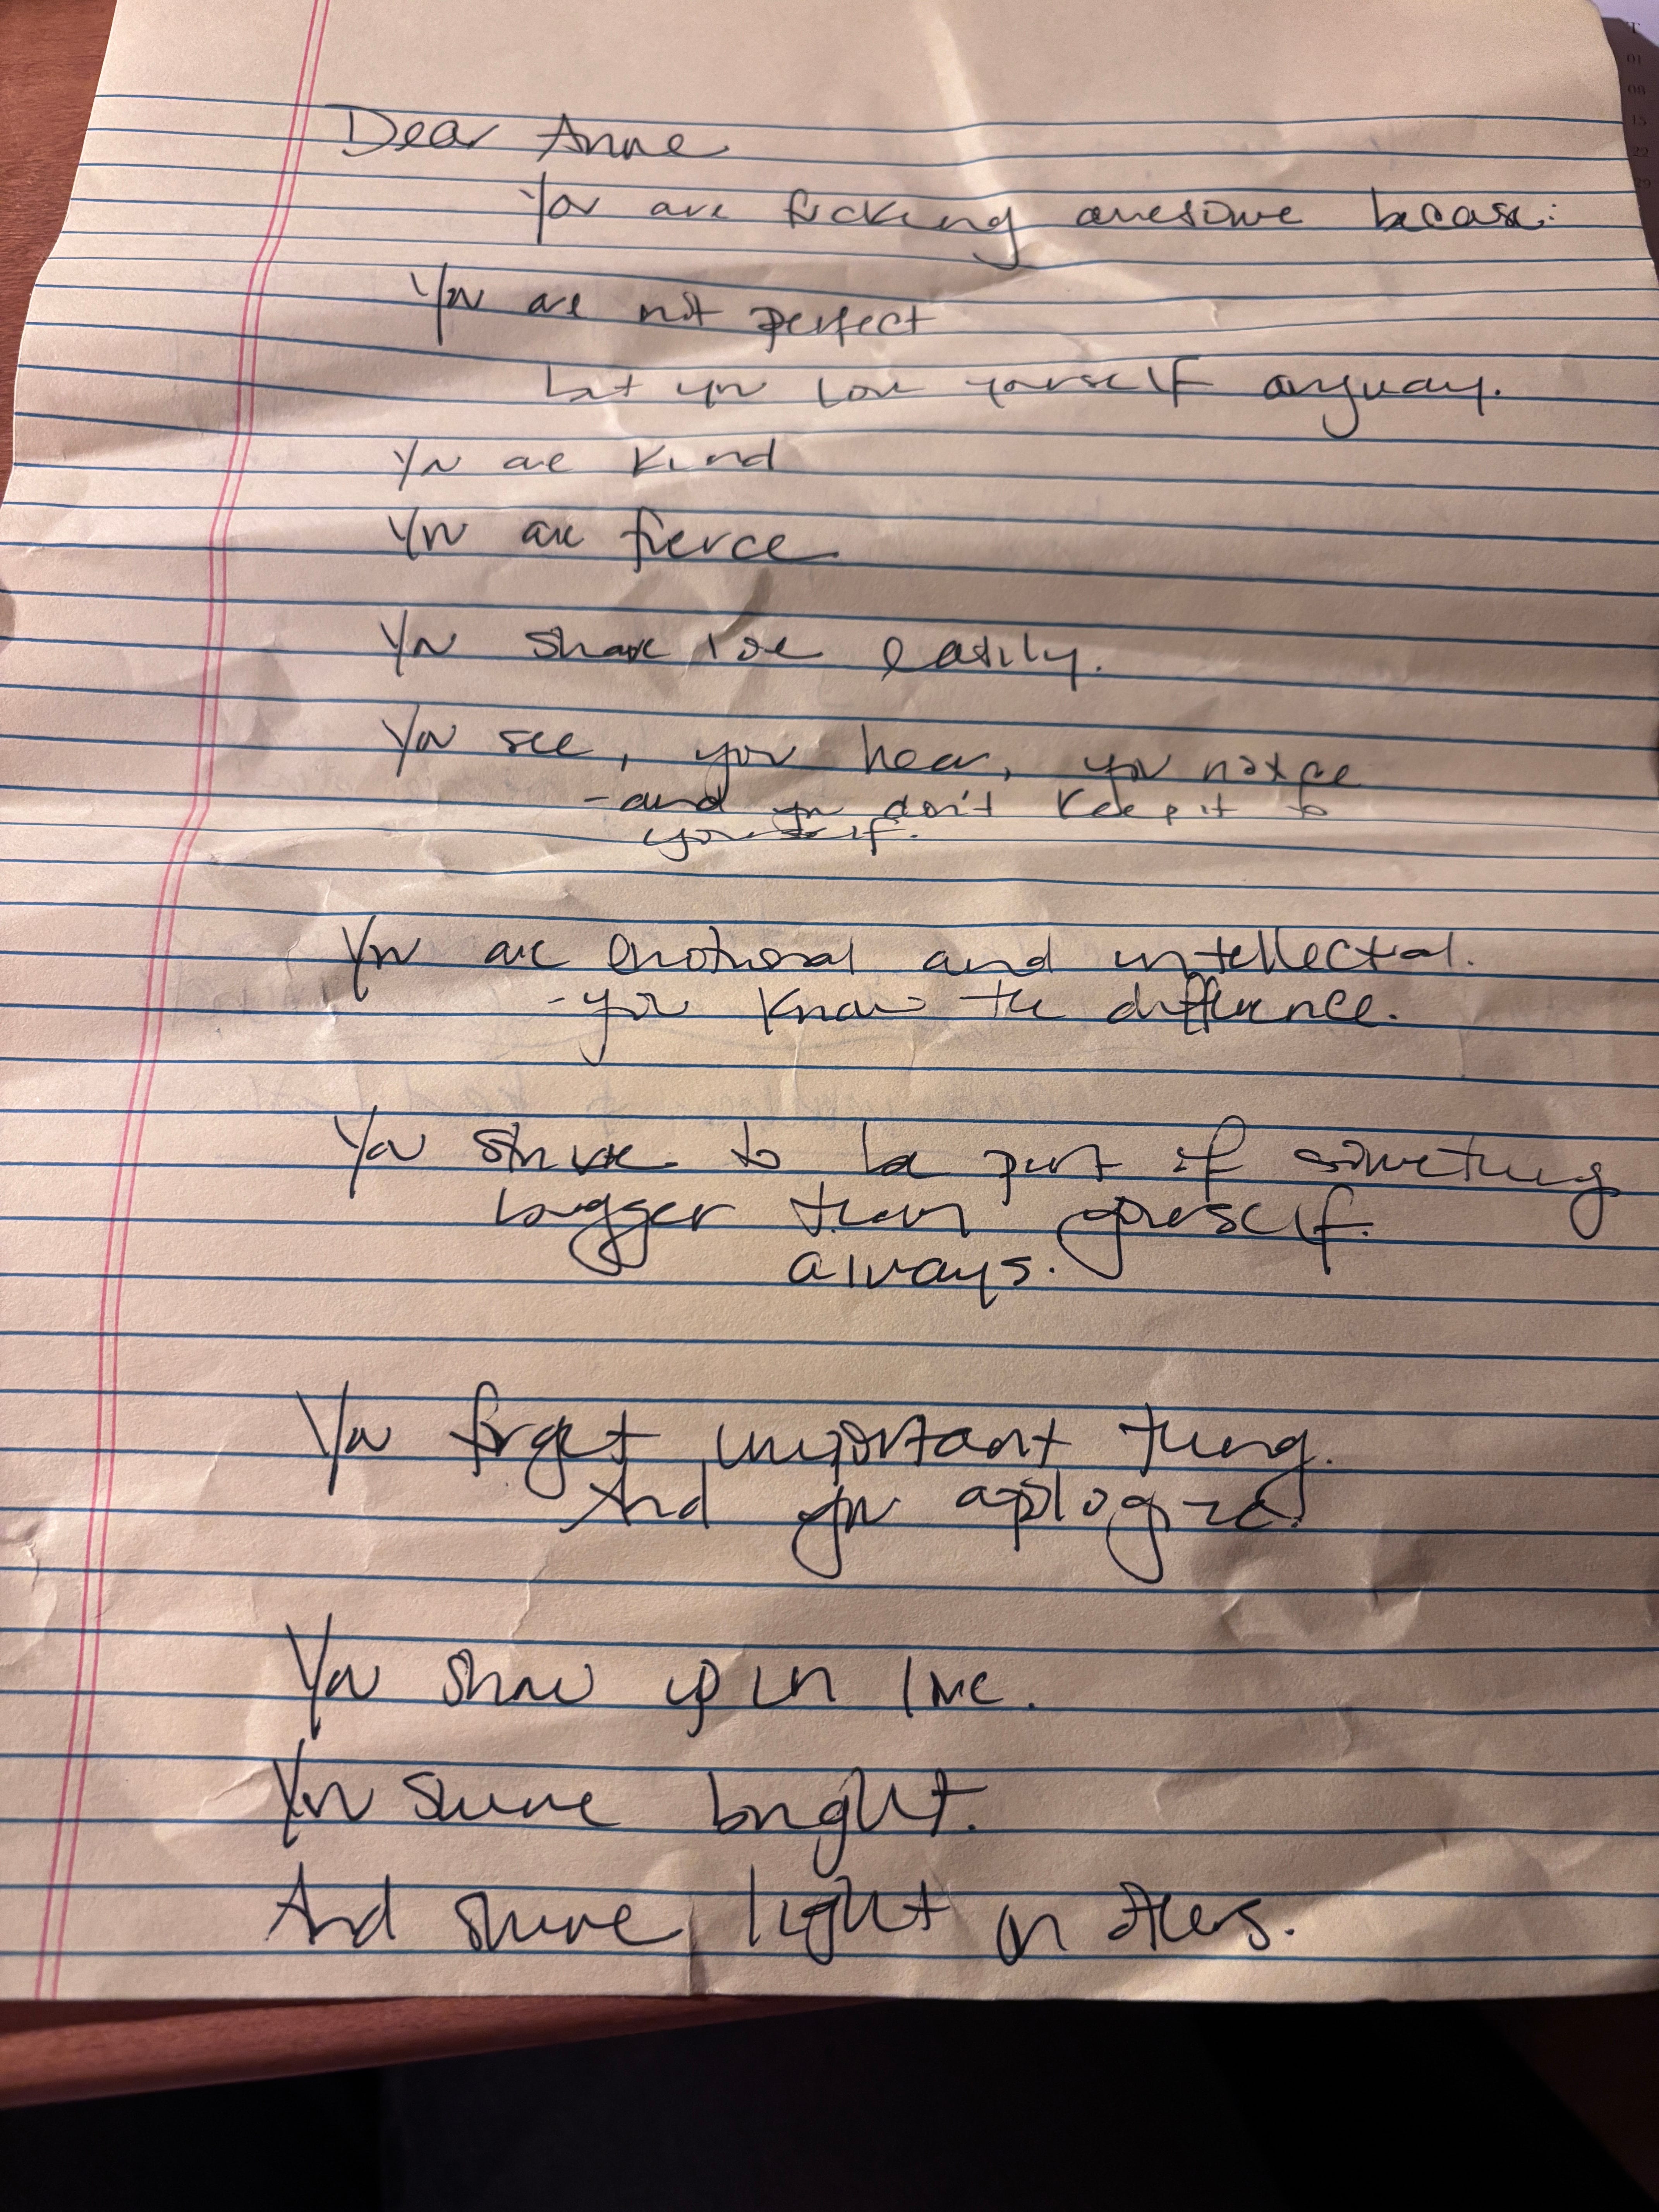 Dear Anne
You are fucking awesome because:
You are not perfect
but you love yourself anyway.
You are kind
You are fierce
You share love easily.
You see, you hear, you notice
- and you don't keep it to
yourself.
You are emotional and intellectual.
- you know the difference.
You strive to be part of something
bigger than yourself.
always.
You forget important thing.
And you apologize.
You show up in love.
You shine bright.
And shine light on others.